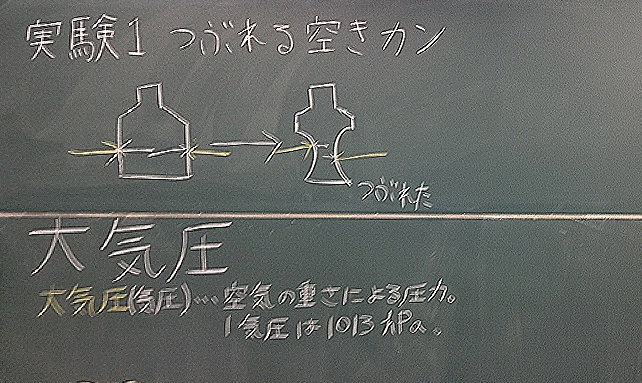 実験1 つぶれる空きカン
つぶれた
大気圧
大気圧(気圧)…空気の重さによる圧力。
1気圧は1013hPa。